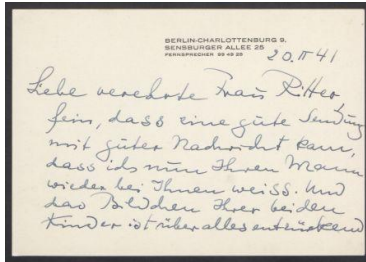 BERLIN-CHARLOTTENBURG 9,
SENSBURGER ALLEE 25
FERNSPRECHER 99 49 25
20. II 41
Liebe verehrte Frau Ritter,
fein, dass eine gute Sendung
mit guter Nachricht kam,
dass ich nun Ihren Mann
wieder bei Ihnen weiss. Und
das Bildchen Ihrer beiden
Kinder ist über alles entzückend